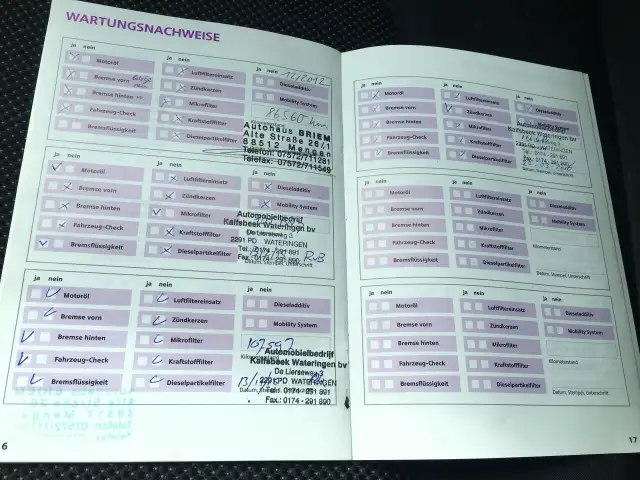 WARTUNGSNACHWEISE
ja nein
ja nein
ja nein
Motoröl
Luftfiltereinsatz
12/2012
Dieseladditiv
Bremse vorn
Zündkerzen
Mobility System
Bremse hinten
Mikrofilter
86560 km
Fahrzeug-Check
Kraftstofffilter
Bremsflüssigkeit
Dieselpartikelfilter
Autohaus BRIEM
Alte Straße 26/1
88512 Mengen
Telefon: 07572/711281
Telefax: 07572/711549
ja nein
ja nein
ja nein
Motoröl
Luftfiltereinsatz
Dieseladditiv
Bremse vorn
Zündkerzen
Mobility System
Bremse hinten
Mikrofilter
Fahrzeug-Check
Kraftstofffilter
Bremsflüssigkeit
Dieselpartikelfilter
Automobielbedrijf
Kalfsbeek Wateringen bv
De Lierseweg 3
2291 PD WATERINGEN
Tel.: 0174 - 291 891
Fax.: 0174 - 291 890
Datum, Stempel, Unterschrift
ja nein
ja nein
ja nein
Motoröl
Luftfiltereinsatz
Dieseladditiv
Bremse vorn
Zündkerzen
Mobility System
Bremse hinten
Mikrofilter
107592
Fahrzeug-Check
Kraftstofffilter
Bremsflüssigkeit
Dieselpartikelfilter
Automobielbedrijf
Kalfsbeek Wateringen bv
De Lierseweg 3
2291 PD WATERINGEN
Tel.: 0174 - 291 891
Fax.: 0174 - 291 890
6
ja nein
ja nein
ja nein
Motoröl
Luftfiltereinsatz
Dieseladditiv
Bremse vorn
Zündkerzen
Mobility System
Bremse hinten
Mikrofilter
Fahrzeug-Check
Kraftstofffilter
Bremsflüssigkeit
Dieselpartikelfilter
Automobielbedrijf
Kalfsbeek Wateringen bv
ja nein
ja nein
ja nein
Motoröl
Luftfiltereinsatz
Dieseladditiv
Bremse vorn
Zündkerzen
Mobility System
Bremse hinten
Mikrofilter
Kilometerstand
Fahrzeug-Check
Kraftstofffilter
Bremsflüssigkeit
Dieselpartikelfilter
Datum, Stempel, Unterschrift
ja nein
ja nein
ja nein
Motoröl
Luftfiltereinsatz
Dieseladditiv
Bremse vorn
Zündkerzen
Mobility System
Bremse hinten
Mikrofilter
Kilometerstand
Fahrzeug-Check
Kraftstofffilter
Bremsflüssigkeit
Dieselpartikelfilter
Datum, Stempel, Unterschrift
17